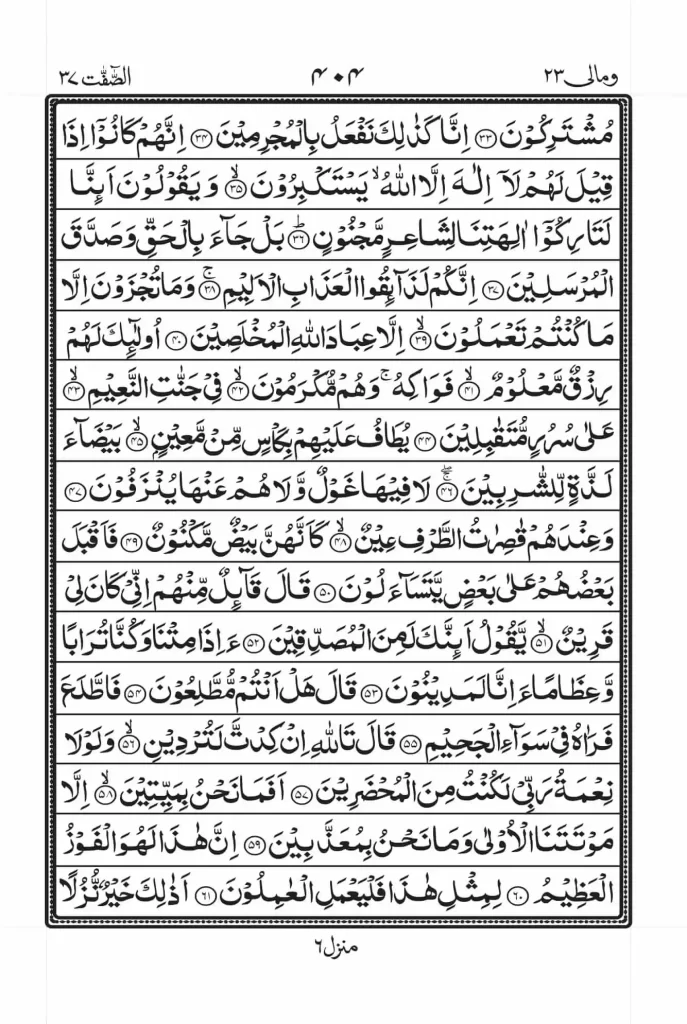 ومالى ٢٣ ۴۰۴ الصّٰفّٰت ٣٧
مُشْتَرِكُوْنَ ﴿٣٣﴾ اِنَّا كَذٰلِكَ نَفْعَلُ بِالْمُجْرِمِيْنَ ﴿٣٤﴾ اِنَّهُمْ كَانُوْٓا اِذَا
قِيْلَ لَهُمْ لَآ اِلٰهَ اِلَّا اللّٰهُ ۙ يَسْتَكْبِرُوْنَ ﴿٣٥﴾ۙ وَيَقُوْلُوْنَ اَئِنَّا
لَتَارِكُوْٓا اٰلِهَتِنَا لِشَاعِرٍ مَّجْنُوْنٍ ﴿٣٦﴾ؕ بَلْ جَآءَ بِالْحَقِّ وَصَدَّقَ
الْمُرْسَلِيْنَ ﴿٣٧﴾ اِنَّكُمْ لَذَآئِقُوا الْعَذَابِ الْاَلِيْمِ ﴿٣٨﴾ۚ وَمَا تُجْزَوْنَ اِلَّا
مَا كُنْتُمْ تَعْمَلُوْنَ ﴿٣٩﴾ۙ اِلَّا عِبَادَ اللّٰهِ الْمُخْلَصِيْنَ ﴿٤٠﴾ اُولٰٓئِكَ لَهُمْ
رِزْقٌ مَّعْلُوْمٌ ﴿٤١﴾ۙ فَوَاكِهُ ۚ وَهُمْ مُّكْرَمُوْنَ ﴿٤٢﴾ۙ فِيْ جَنّٰتِ النَّعِيْمِ ﴿٤٣﴾ۙ
عَلٰى سُرُرٍ مُّتَقٰبِلِيْنَ ﴿٤٤﴾ يُطَافُ عَلَيْهِمْ بِكَاْسٍ مِّنْ مَّعِيْنٍ ﴿٤٥﴾ۙ بَيْضَآءَ
لَذَّةٍ لِّلشّٰرِبِيْنَ ﴿٤٦﴾ۚ لَا فِيْهَا غَوْلٌ وَّلَا هُمْ عَنْهَا يُنْزَفُوْنَ ﴿٤٧﴾
وَعِنْدَهُمْ قٰصِرٰتُ الطَّرْفِ عِيْنٌ ﴿٤٨﴾ۙ كَاَنَّهُنَّ بَيْضٌ مَّكْنُوْنٌ ﴿٤٩﴾ فَاَقْبَلَ
بَعْضُهُمْ عَلٰى بَعْضٍ يَّتَسَآءَلُوْنَ ﴿٥٠﴾ قَالَ قَآئِلٌ مِّنْهُمْ اِنِّيْ كَانَ لِيْ
قَرِيْنٌ ﴿٥١﴾ۙ يَّقُوْلُ اَئِنَّكَ لَمِنَ الْمُصَدِّقِيْنَ ﴿٥٢﴾ ءَاِذَا مِتْنَا وَكُنَّا تُرَابًا
وَّعِظَامًا ءَاِنَّا لَمَدِيْنُوْنَ ﴿٥٣﴾ قَالَ هَلْ اَنْتُمْ مُّطَّلِعُوْنَ ﴿٥٤﴾ فَاطَّلَعَ
فَرَاٰهُ فِيْ سَوَآءِ الْجَحِيْمِ ﴿٥٥﴾ قَالَ تَاللّٰهِ اِنْ كِدْتَّ لَتُرْدِيْنِ ﴿٥٦﴾ۙ وَلَوْلَا
نِعْمَةُ رَبِّيْ لَكُنْتُ مِنَ الْمُحْضَرِيْنَ ﴿٥٧﴾ اَفَمَا نَحْنُ بِمَيِّتِيْنَ ﴿٥٨﴾ۙ اِلَّا
مَوْتَتَنَا الْاُوْلٰى وَمَا نَحْنُ بِمُعَذَّبِيْنَ ﴿٥٩﴾ اِنَّ هٰذَا لَهُوَ الْفَوْزُ
الْعَظِيْمُ ﴿٦٠﴾ لِمِثْلِ هٰذَا فَلْيَعْمَلِ الْعٰمِلُوْنَ ﴿٦١﴾ اَذٰلِكَ خَيْرٌ نُّزُلًا
منزل ٦